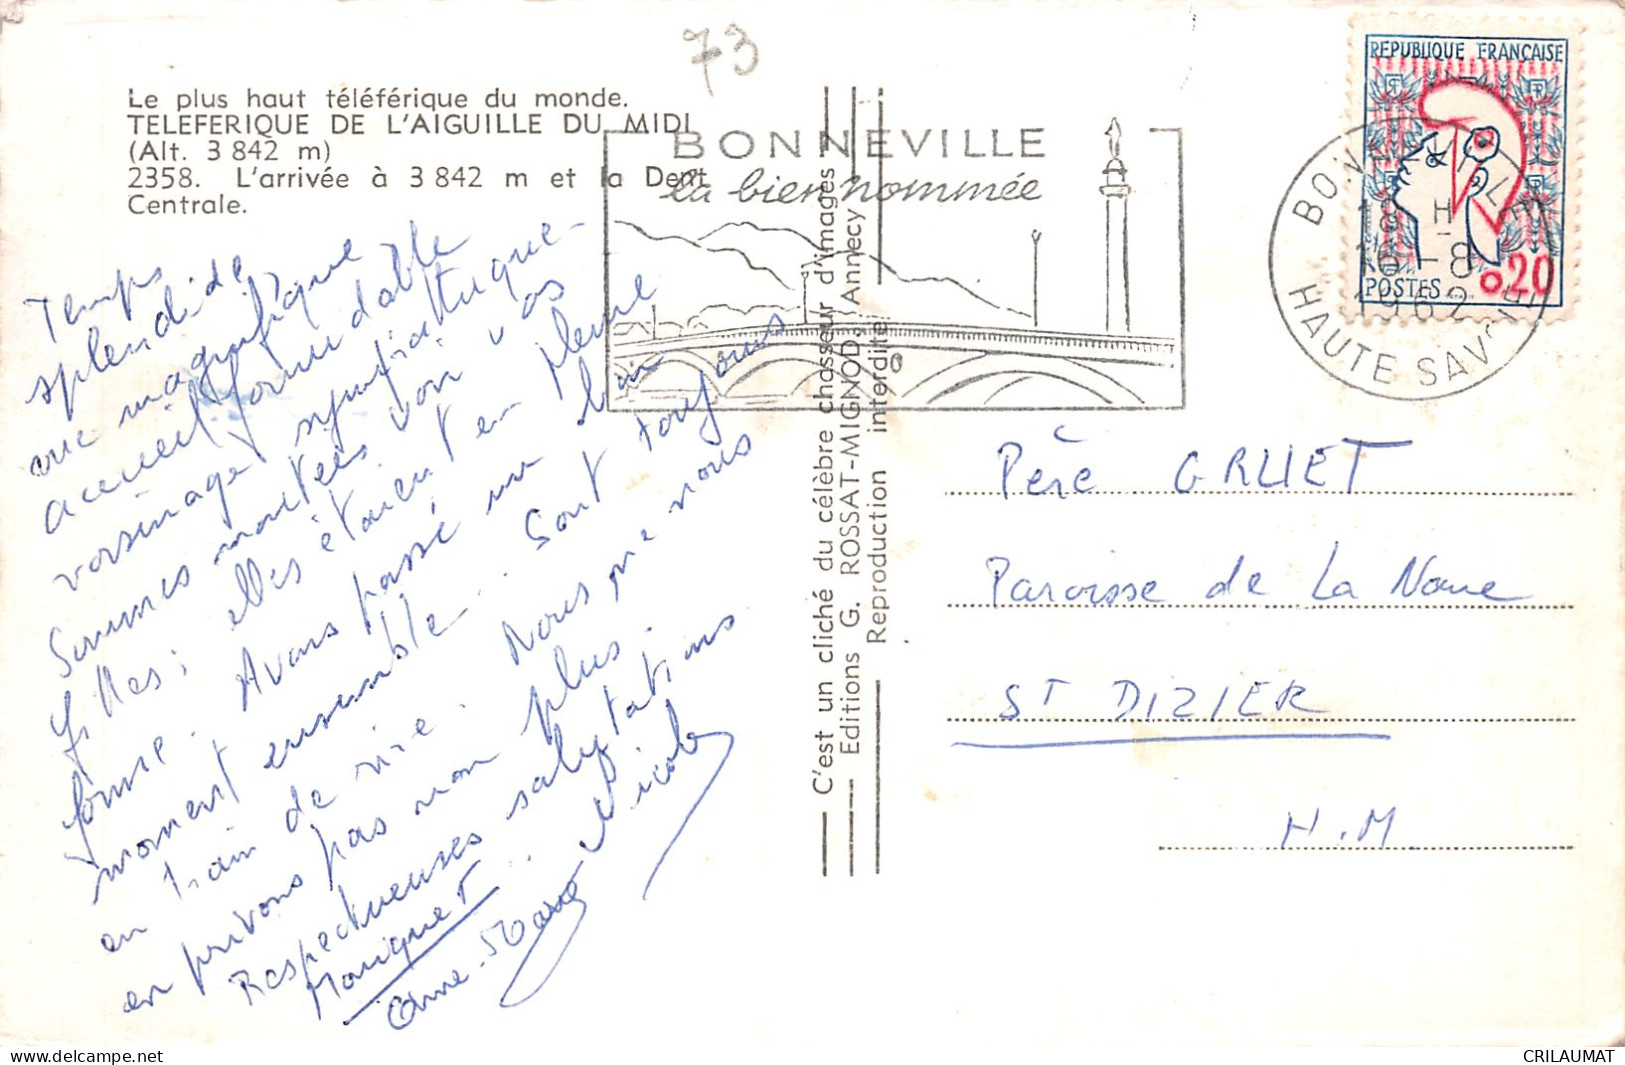 73
Le plus haut téléférique du monde.
TELEFERIQUE DE L'AIGUILLE DU MIDI
(Alt. 3 842 m)
2358. L'arrivée à 3 842 m et la Dent
Centrale.
BONNEVILLE
la bien nommée
REPUBLIQUE FRANÇAISE
0,20
POSTES
BONNEVILLE
18 H
16-8
1962
HAUTE SAVOIE
C'est un cliché du célèbre chasseur d'images
Editions G. ROSSAT-MIGNOD, Annecy
Reproduction interdite
Temps
splendide
vue magnifique
accueil formidable
voisinage sympathique
Sommes montées voir vos
filles; elles étaient en pleine
forme. Avons passé un bon
moment ensemble. Sont toujours
en train de rire. Nous ne nous
en privons pas non plus.
Respectueuses salutations
Monique T. Nicole
Anne-Marie
Père GRUET
Paroisse de La Noue
ST DIZIER
H.M.
CRILAUMAT
www.delcampe.net